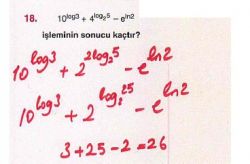 18. 10^log3 + 4^log₂5 − e^ln2
işleminin sonucu kaçtır?
10^log3 + 2^2log₂5 − e^ln2
10^log3 + 2^log₂25 − e^ln2
3+25-2=26